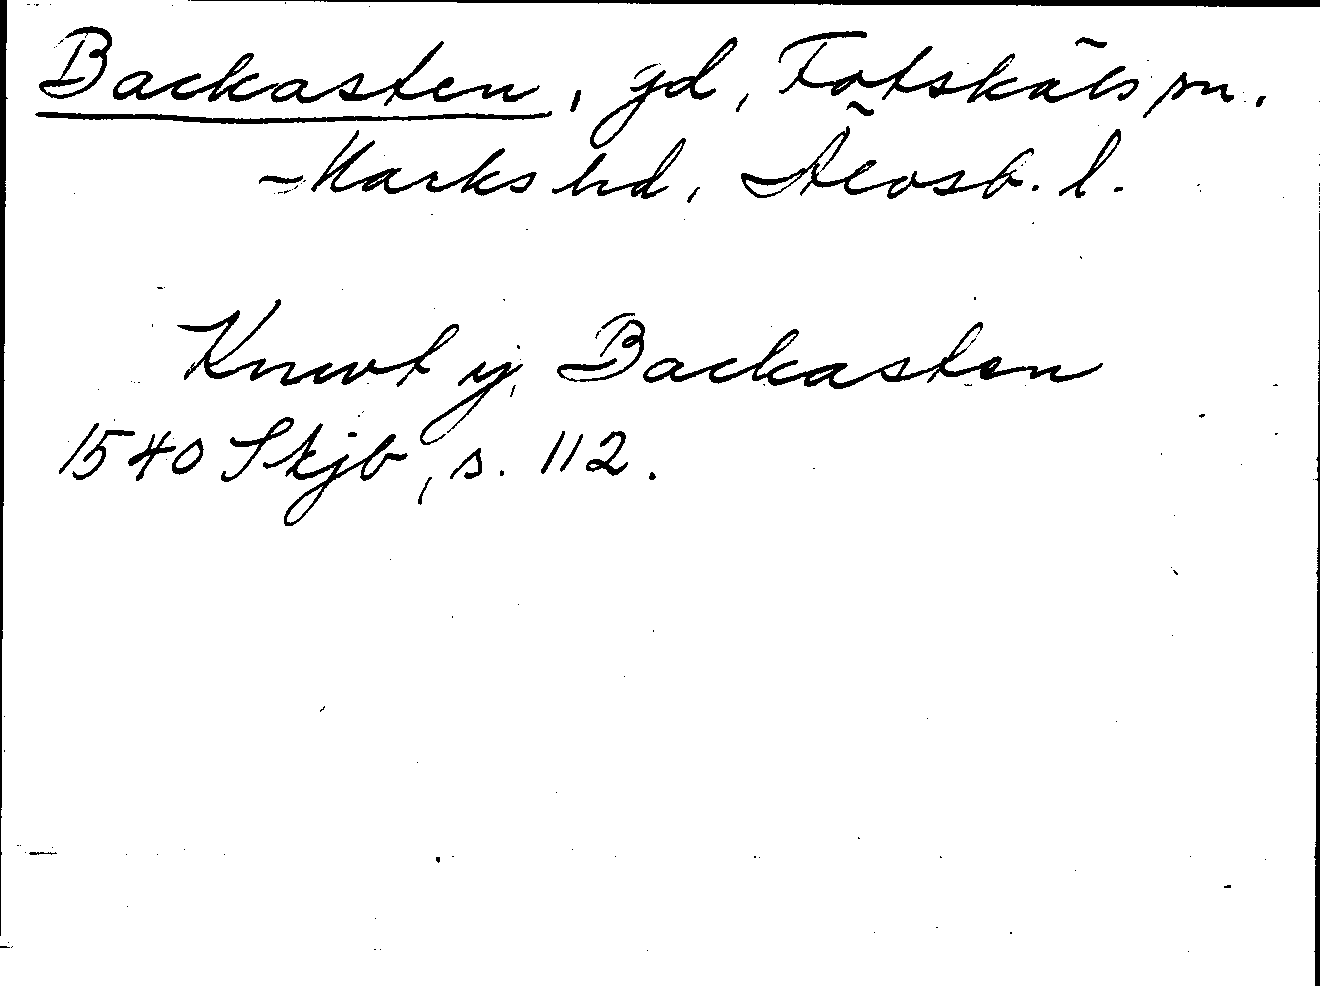 Backasten, gd, Fotskäls sn.
Marks hd, Älvsb. l.
Knwt ij Backasten
1540 Skjb, s. 112.